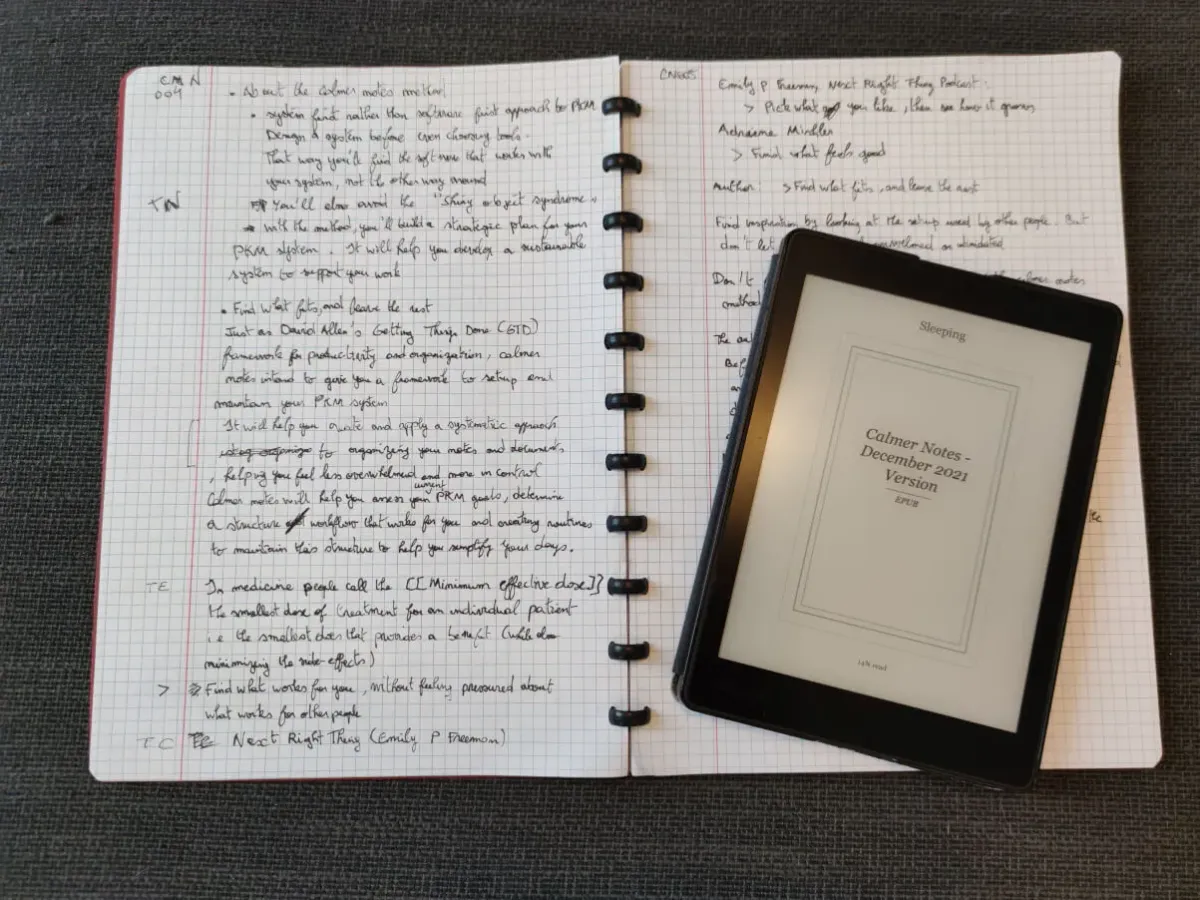 CMN
004
• About the Calmer notes method
• system first rather than software first approach to PKM
Design a system before even choosing tools.
That way you'll find the software that works with
your system, not the other way around
TN
You'll also avoid the "Shiny object syndrome"
→ with the method, you'll build a strategic plan for your
PKM system. It will help you develop a sustainable
system to support your work
• Find what fits, and leave the rest
Just as David Allen's Getting Things Done (GTD)
framework for productivity and organization, calmer
notes intend to give you a framework to setup and
maintain your PKM system
It will help you create and apply a systematic approach
to organizing your notes and documents
, helping you feel less overwhelmed and more in control
Calmer notes will help you assess your current PKM goals, determine
a structure workflow that works for you and creating routines
to maintain this structure to help you simplify your days.
TE
In medicine people call the [[Minimum effective dose]]
the smallest dose of treatment for an individual patient
i.e the smallest does that provides a benefit (while also
minimizing the side-effects)
> Find what works for you, without feeling pressured about
what works for other people
TC Next Right Thing (Emily P Freeman)
CN005
Emily P Freeman, Next Right Thing Podcast:
> Pick what you like, then see how it grows
Adriene Mishler
> Find what feels good
Author: > Find what fits, and leave the rest
Find inspiration by looking at the setup used by other people. But
don't let overwhelmed or
Don't calmer notes
method
The au
Bef
an
Sleeping
Calmer Notes -
December 2021
Version
EPUB
14% read